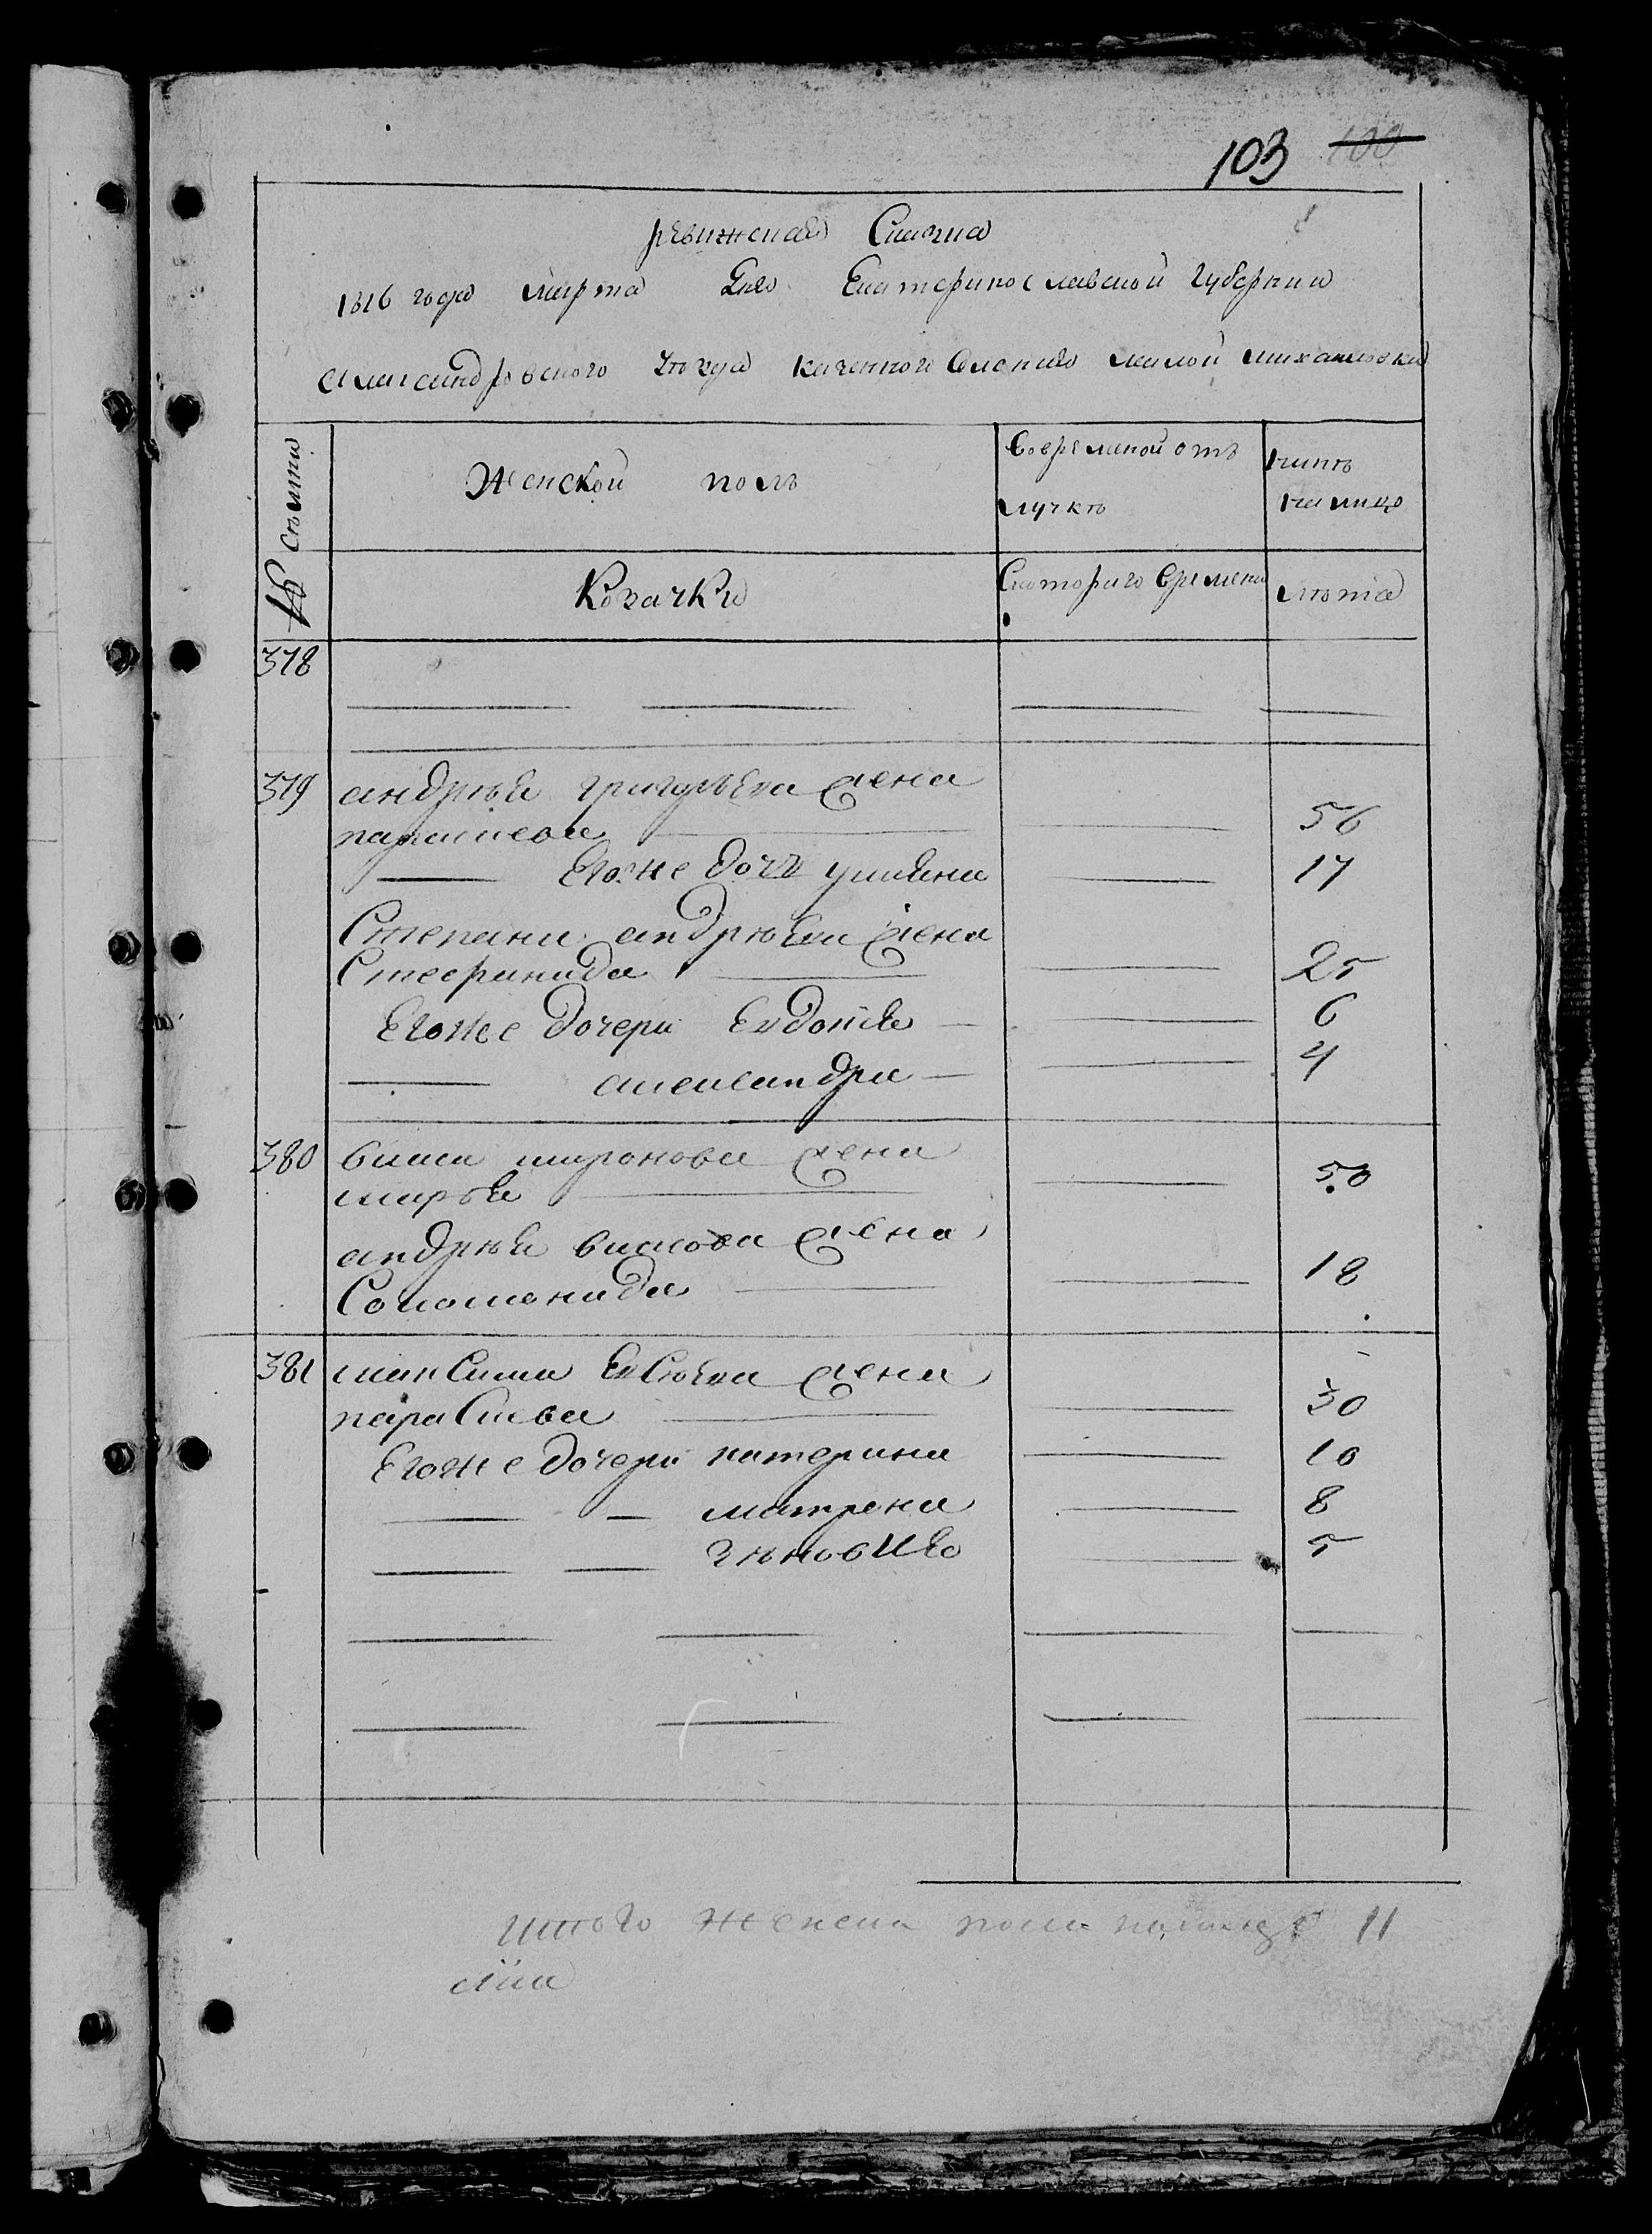 103 100
ревижская Скаска
1816 года марта Дня Екатеринославской губернии
александровского уезда казенного Селения малой михаиловки
№ Семьи
Женской полъ
Во временной отлучкѣ
нынѣ на лицо
Козачки
Скоторого Времени
лѣта
378
379 андрѣя григорьева жена
параскева 56
Егоже дочь ульяна 17
Степана андрѣева жена
Стефанида 25
Егоже дочери Евдокия 6
александра 4
380 власа миронова жена
марья 50
андрѣя власова жена
Соломонида 18
381 максима Евсѣева жена
параскева 30
Егоже дочери катерина 10
матрена 8
зѣновия 5
Итого женска пола налицо 11